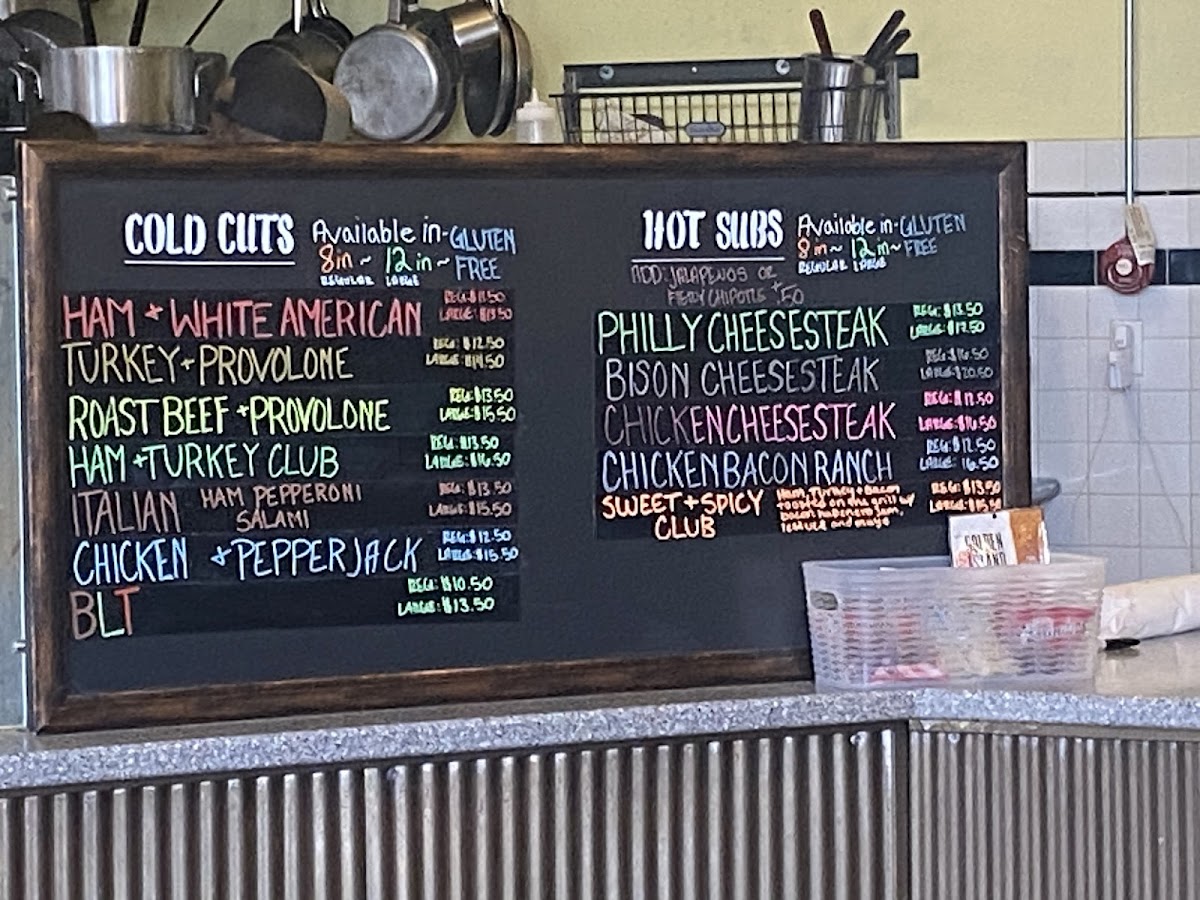 COLD CUTS
Available in - GLUTEN FREE
8 in ~ 12 in ~
REGULAR LARGE
HAM + WHITE AMERICAN
REG: $11.50
LARGE: $13.50
TURKEY + PROVOLONE
REG: $12.50
LARGE: $14.50
ROAST BEEF + PROVOLONE
REG: $13.50
LARGE: $15.50
HAM + TURKEY CLUB
REG: $13.50
LARGE: $16.50
ITALIAN HAM PEPPERONI
SALAMI
REG: $13.50
LARGE: $15.50
CHICKEN + PEPPERJACK
REG: $12.50
LARGE: $15.50
BLT
REG: $10.50
LARGE: $13.50
HOT SUBS
Available in - GLUTEN
8 in ~ 12 in ~ FREE
REGULAR LARGE
ADD: JALAPENOS OR
FIERY CHIPOTLE + .50
PHILLY CHEESESTEAK
REG: $13.50
LARGE: $17.50
BISON CHEESESTEAK
REG: $16.50
LARGE: $20.50
CHICKEN CHEESESTEAK
REG: $12.50
LARGE: $16.50
CHICKEN BACON RANCH
REG: $12.50
LARGE: 16.50
SWEET + SPICY
CLUB
Ham, Turkey + Bacon
toasted on the grill w/
bacon habanero jam,
lettuce and mayo
REG: $13.50
LARGE: $15.50
GOLDEN
ISLAND